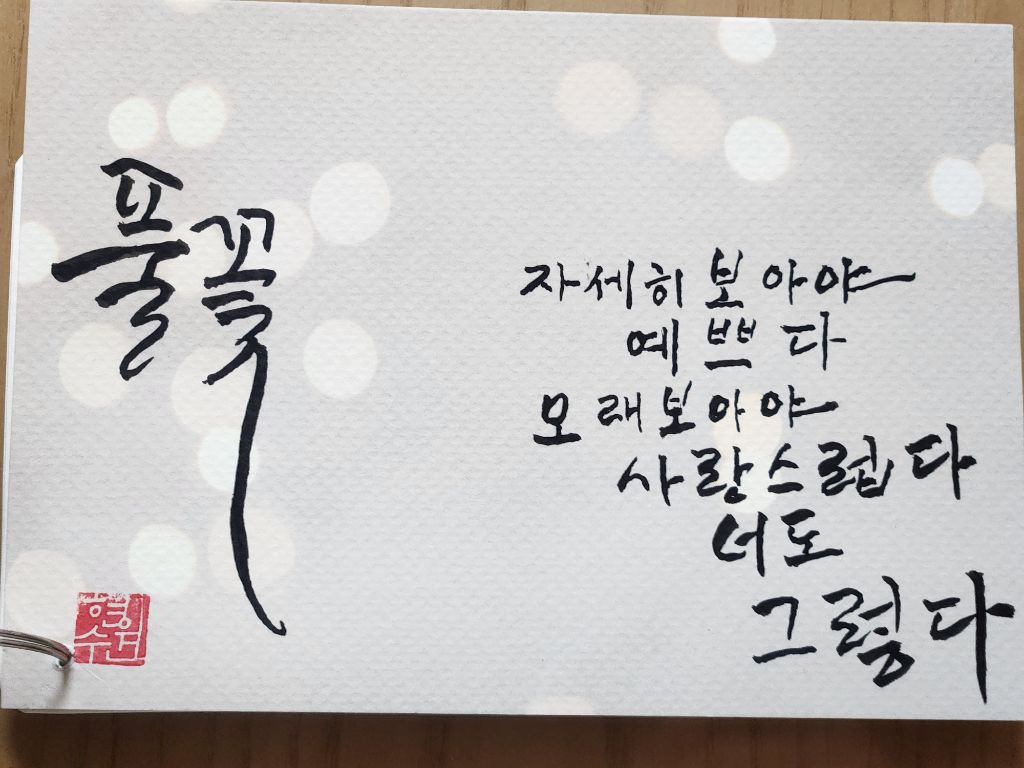 풀꽃
자세히 보아야
예쁘다
오래 보아야
사랑스럽다
너도
그렇다